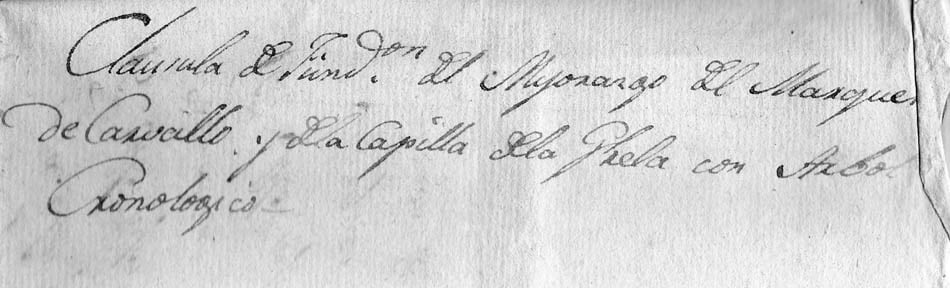 Clausula de Fund.on del Mayorazgo del Marques
de Carvallo. y de la Capilla de la Yhela con Arbol
Chronologico